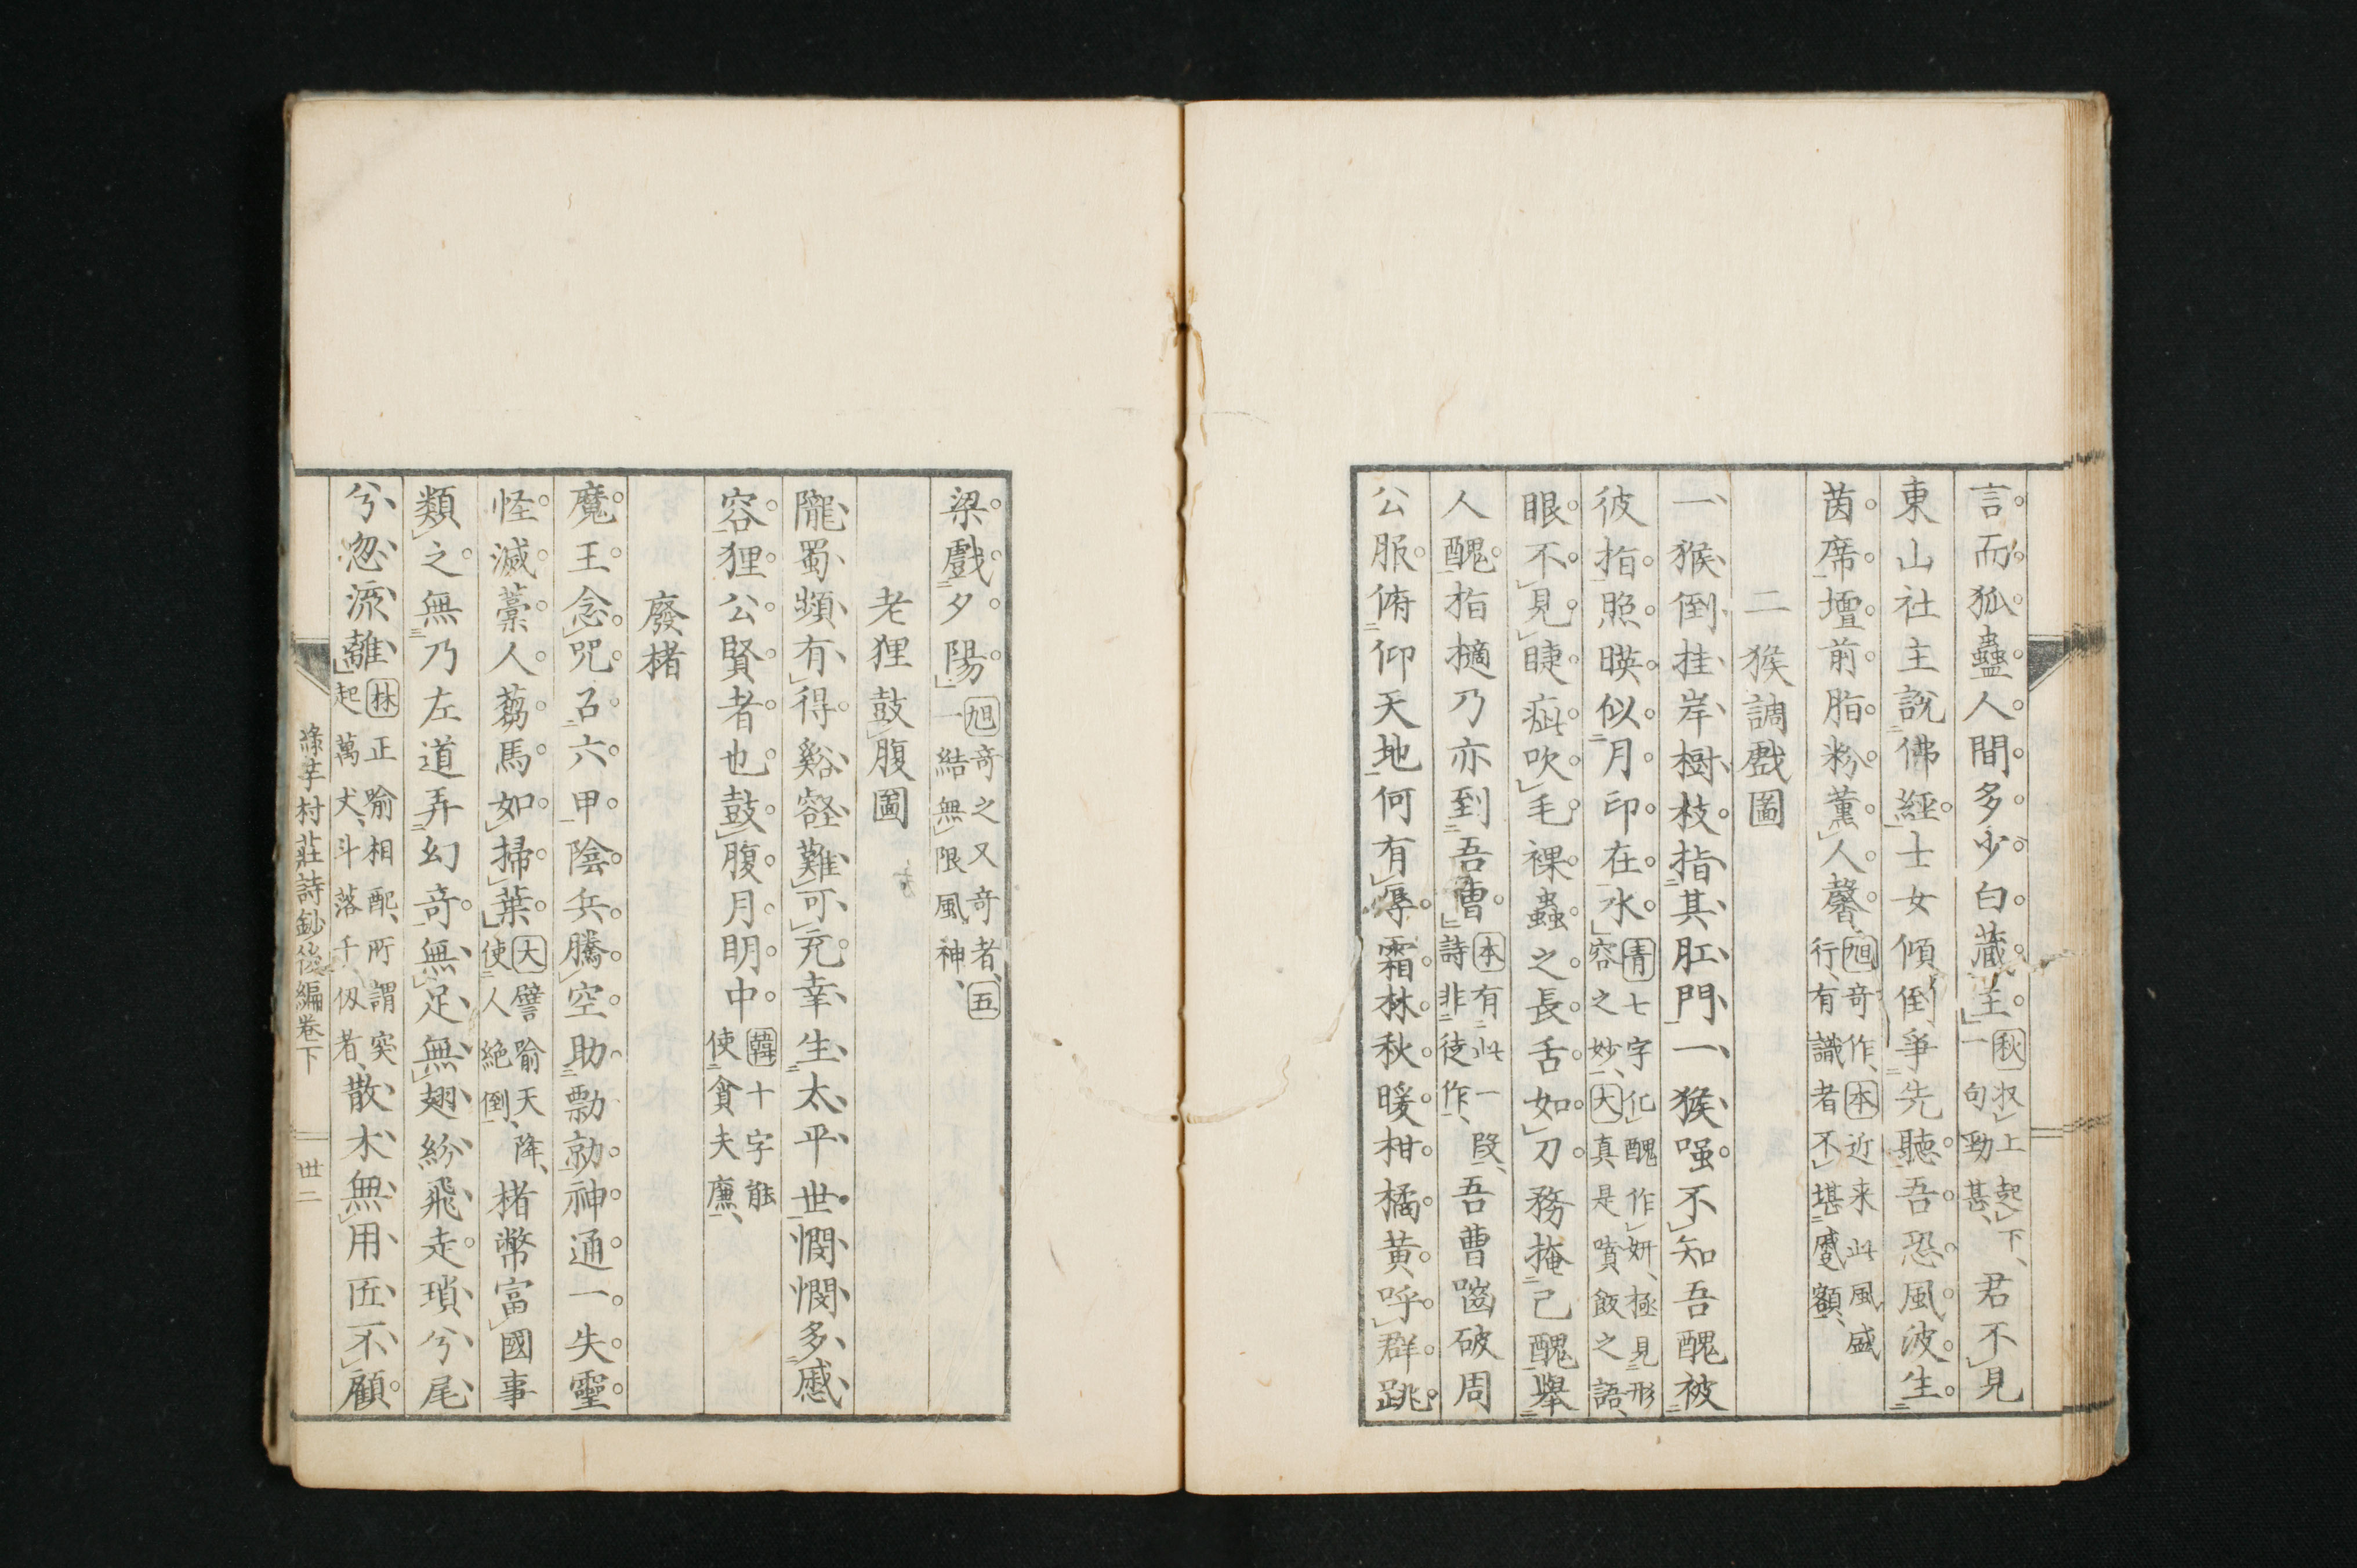 言而狐蠱人間多少白藏主㊙秋収上起下、一句勁甚、君不見
東山社主説佛經士女傾倒爭先聽吾恐風波生
茵席壇前脂粉薫人馨旭奇作、本近来此風盛行、有識者不堪蹙額、
二猴調戲圖
一猴倒挂岸樹枝指其肛門一猴强不知吾醜被
彼指照暎似月印在水青七字化醜作妍、極見形容之妙、大真是噴飯之語、
眼不見睫疵吹毛裸蟲之長舌如刀務掩己醜舉
人醜指擿乃亦到吾曹本有此一段、詩非徒作、吾曹嚙破周
公服俯仰天地何有辱霜林秋暖柑橘黄呼群跳
梁戲夕陽旭奇之又奇者、五一結無限風神、
老狸鼓腹圖
隴蜀頻有得谿壑難可充幸生太平世憫憫多慼
容狸公賢者也鼓腹月明中韓十字能使貪夫廉、
廢楮
魔王念咒召六甲陰兵騰空助剽勍神通一失靈
怪滅藁人蒭馬如掃葉大譬喻天降、使人絶倒、楮幣富國事
類之無乃左道弄幻奇無足無翅紛飛走瑣兮尾
兮忽流離林正喻相配、所謂突起萬丈、斗落千仭者、散木無用匠不顧
綠芋村莊詩鈔後編卷下
丗二